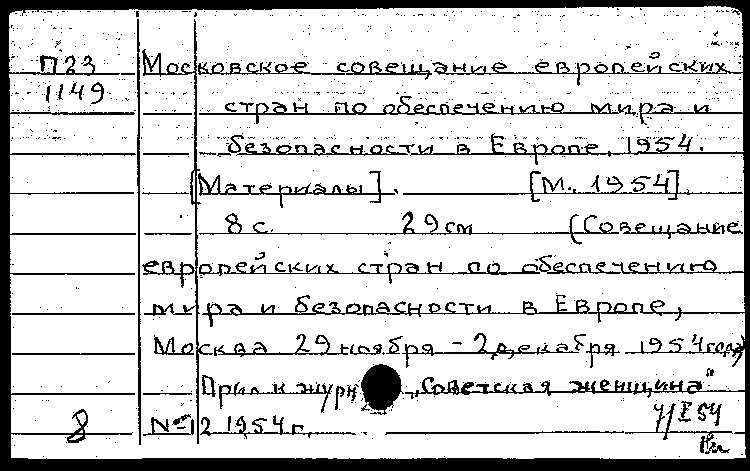 П23 Московское совещание европейских
1149 стран по обеспечению мира и
безопасности в Европе, 1954.
[Материалы]. [М., 1954].
8 с. 29 см (Совещание
европейских стран по обеспечению
мира и безопасности в Европе,
Москва 29 ноября - 2 декабря 1954 года)
Прил к журн „Советская женщина"
8 №12 1954 г.